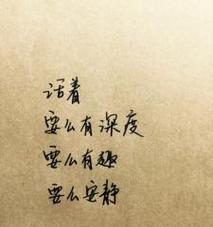 话着
要么有深度
要么有趣
要么安静